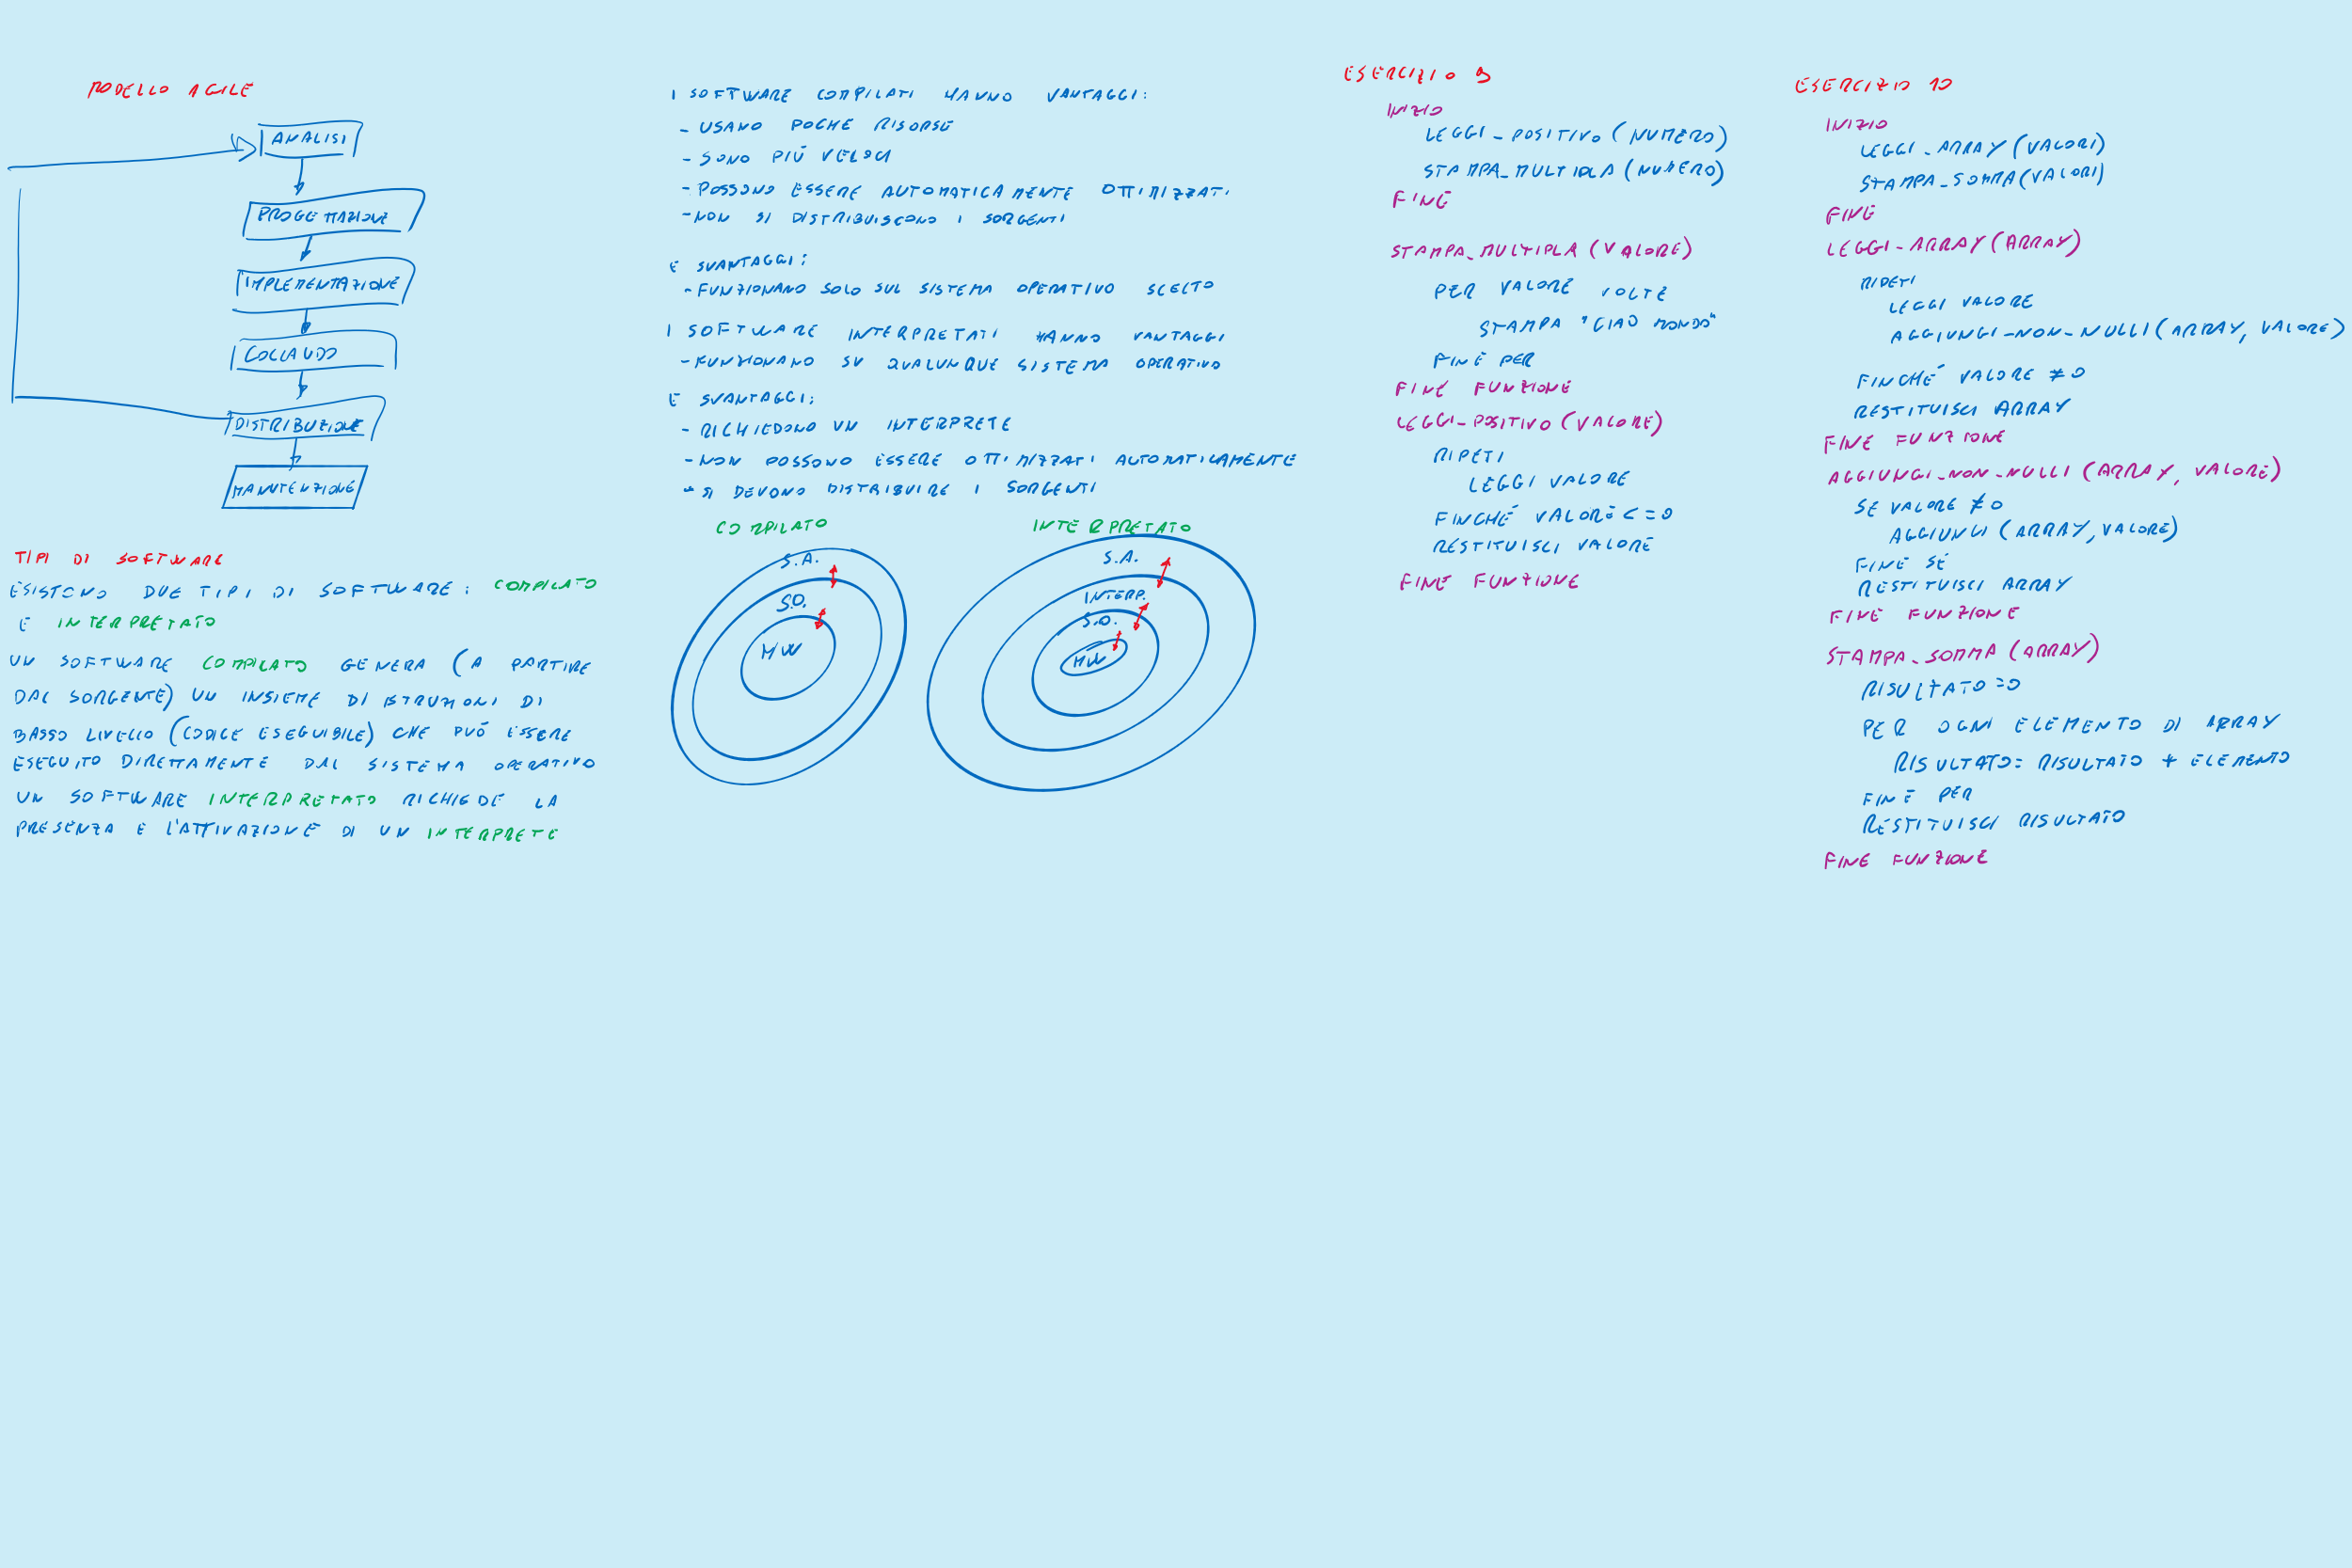 MODELLO AGILE
ANALISI
PROGETTAZIONE
IMPLEMENTAZIONE
COLLAUDO
DISTRIBUZIONE
MANUTENZIONE
TIPI DI SOFTWARE
ESISTONO DUE TIPI DI SOFTWARE: COMPILATO
E INTERPRETATO
UN SOFTWARE COMPILATO GENERA (A PARTIRE
DAL SORGENTE) UN INSIEME DI ISTRUZIONI DI
BASSO LIVELLO (CODICE ESEGUIBILE) CHE PUÒ ESSERE
ESEGUITO DIRETTAMENTE DAL SISTEMA OPERATIVO
UN SOFTWARE INTERPRETATO RICHIEDE LA
PRESENZA E L'ATTIVAZIONE DI UN INTERPRETE
I SOFTWARE COMPILATI HANNO VANTAGGI:
- USANO POCHE RISORSE
- SONO PIÙ VELOCI
- POSSONO ESSERE AUTOMATICAMENTE OTTIMIZZATI
- NON SI DISTRIBUISCONO I SORGENTI
E SVANTAGGI:
- FUNZIONANO SOLO SUL SISTEMA OPERATIVO SCELTO
I SOFTWARE INTERPRETATI HANNO VANTAGGI
- FUNZIONANO SU QUALUNQUE SISTEMA OPERATIVO
E SVANTAGGI:
- RICHIEDONO UN INTERPRETE
- NON POSSONO ESSERE OTTIMIZZATI AUTOMATICAMENTE
- SI DEVONO DISTRIBUIRE I SORGENTI
COMPILATO
S.A.
S.O.
HW
INTERPRETATO
S.A.
INTERP.
S.O.
HW
ESERCIZIO 9
INIZIO
LEGGI_POSITIVO (NUMERO)
STAMPA_MULTIPLA (NUMERO)
FINE
STAMPA_MULTIPLA (VALORE)
PER VALORE VOLTE
STAMPA "CIAO MONDO"
FINE PER
FINE FUNZIONE
LEGGI_POSITIVO (VALORE)
RIPETI
LEGGI VALORE
FINCHÉ VALORE <= 0
RESTITUISCI VALORE
FINE FUNZIONE
ESERCIZIO 10
INIZIO
LEGGI_ARRAY (VALORI)
STAMPA_SOMMA (VALORI)
FINE
LEGGI_ARRAY (ARRAY)
RIPETI
LEGGI VALORE
AGGIUNGI_NON_NULLI (ARRAY, VALORE)
FINCHÉ VALORE ≠ 0
RESTITUISCI ARRAY
FINE FUNZIONE
AGGIUNGI_NON_NULLI (ARRAY, VALORE)
SE VALORE ≠ 0
AGGIUNGI (ARRAY, VALORE)
FINE SE
RESTITUISCI ARRAY
FINE FUNZIONE
STAMPA_SOMMA (ARRAY)
RISULTATO = 0
PER OGNI ELEMENTO DI ARRAY
RISULTATO = RISULTATO + ELEMENTO
FINE PER
RESTITUISCI RISULTATO
FINE FUNZIONE